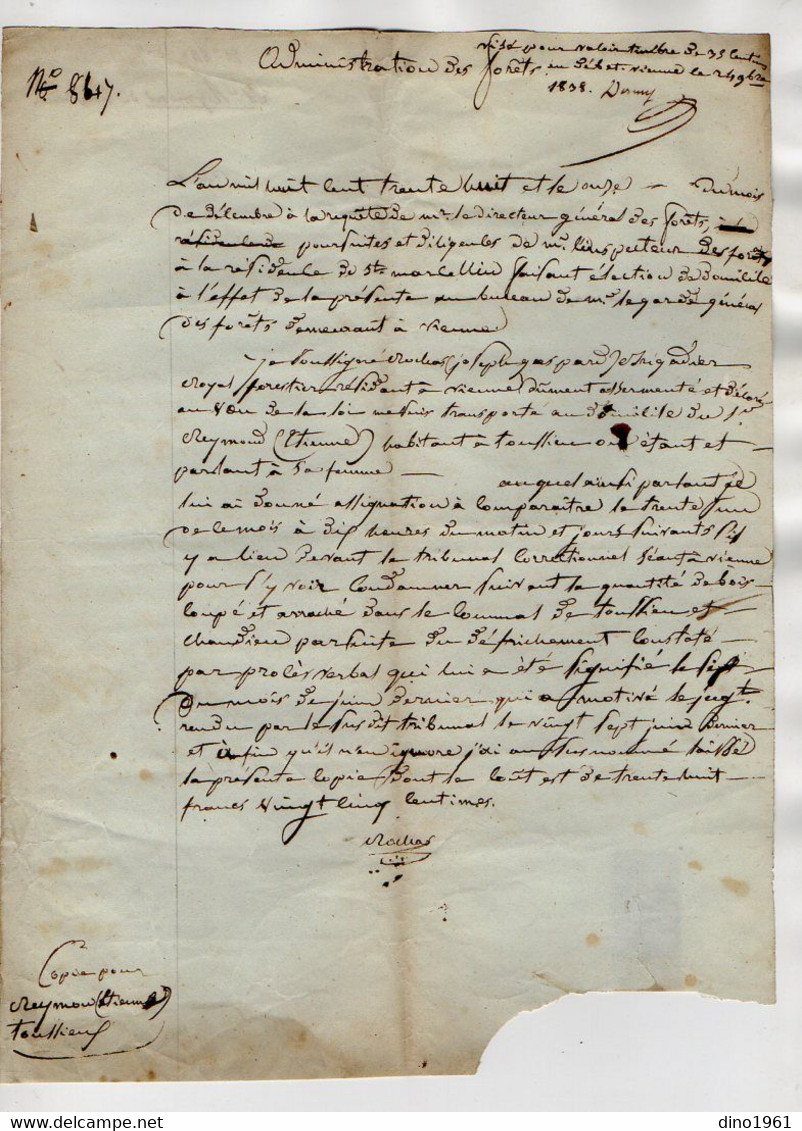 N° 847.
Administration des forêts
visé pour valoir timbre de 35 centimes
en débet. vienne le 24 9bre
1838.
L'an mil huit cent trente huit et le onze — du mois
de décembre à la requête de mr. le directeur général des forêts, à la
résidence de poursuites et diligences de mr. l'inspecteur des forêts
à la résidence de St. marcellin faisant élection de domicile
à l'effet de la présente au bureau de mr. le garde général
des forêts demeurant à vienne
je soussigné Rochas (joseph gaspard) Brigadier
Royal forestier résidant à vienne, dûment assermenté et décoré
au vœu de la loi me suis transporté au domicile du Sr.
Reymond (Etienne) habitant à toussieu où étant et
parlant à sa femme — auquel ainsi parlant je
lui ai donné assignation à comparaître le trente un
de ce mois à dix heures du matin et jours suivants s'il
y a lieu devant le tribunal correctionnel séant à vienne
pour s'y voir condamner suivant la quantité de bois
coupé et arraché dans le communal de toussieu et
chandieu par suite du défrichement constaté
par procès verbal qui lui a été signifié le sept
du mois de juin dernier qui a motivé le jugt.
rendu par le susdit tribunal le vingt sept juin dernier
et afin qu'il n'en ignore j'ai au susnommé laissé
la présente copie dont le coût est de trente huit
francs vingt cinq centimes.
Rochas
Copie pour
Reymond (Etienne)
toussieu
dino1961